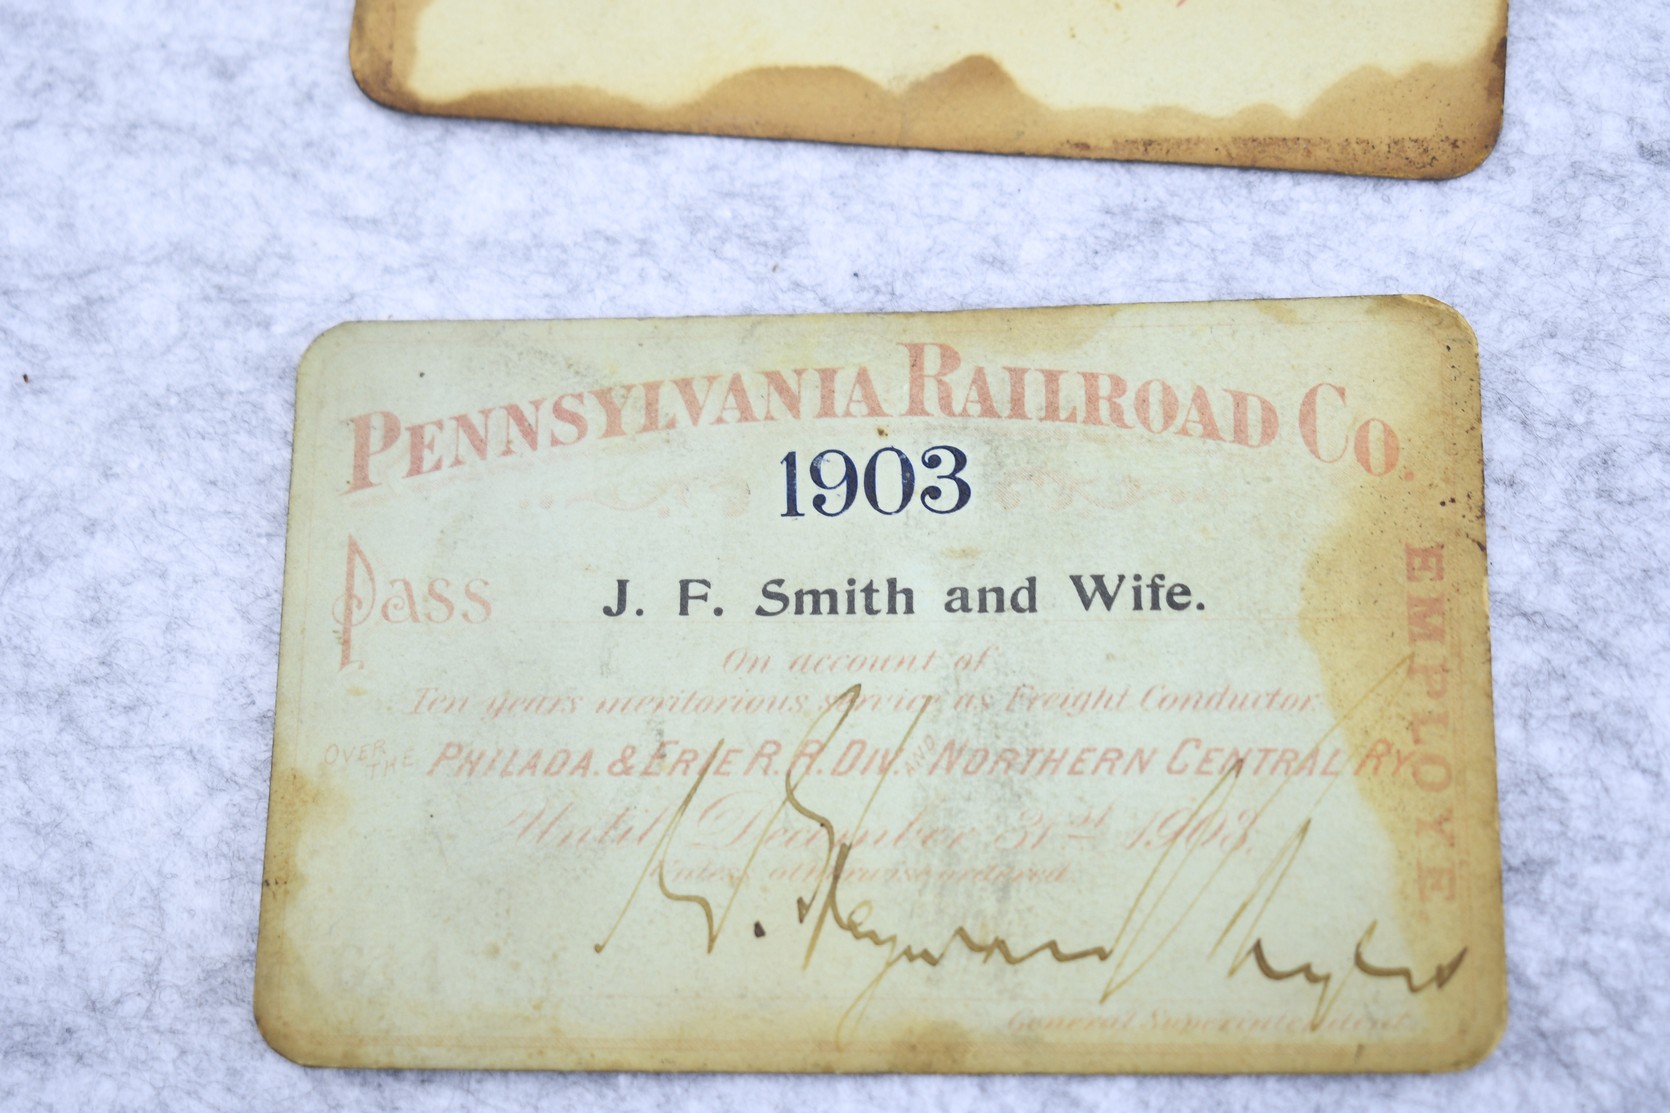 PENNSYLVANIA RAILROAD CO.
1903
Pass J. F. Smith and Wife.
On account of
Ten years meritorious service as Freight Conductor
OVER THE PHILADA. & ERIE R. R. DIV. AND NORTHERN CENTRAL RY.
Until December 31st 1903,
Unless otherwise ordered
General Superintendent.
EMPLOYE